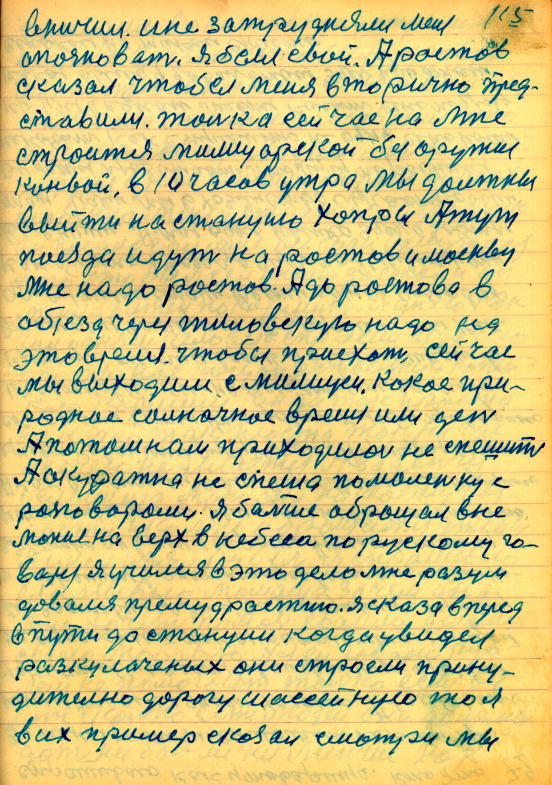 115
вписал. и не затрудняли меня
опозноват. Я был свой. А ростов
сказал чтобы меня вторично пред-
ставили. только сейчас на мне
строится милицэрской без оружия
конвой, в 10 часов утра мы должны
выйти на станцию хопры А тут
поезда идут на ростов и москву
мне надо ростов. А до ростова в
обезд через тиховскую надо на
это время. чтобы приехат, сейчас
мы выходили с милиции, какое при-
родное солночное время или ден
А потом нам приходилос не спешит
Аокуратна не спеша помоленку с
розговорами. Я болше оброщал вне
мание на верх в небеса по рускому го-
варя я учился в это дело мне разум
довался премудростию. я сказа вперед
в пути до станции когда увидел
разкулаченых они строели прину-
дително дорогу шассейную то я
в их пример сказал смотри мы